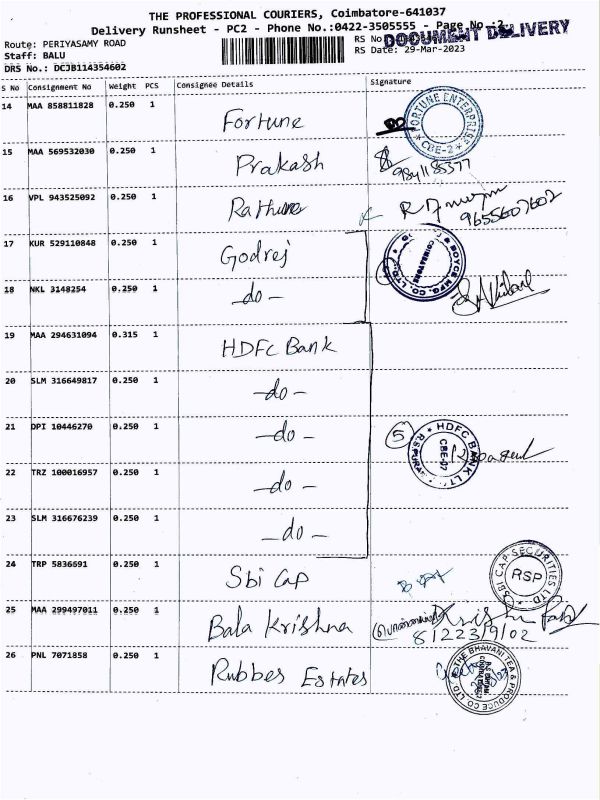 THE PROFESSIONAL COURIERS, Coimbatore-641037
Delivery Runsheet - PC2 - Phone No.:0422-3505555 - Page No.:2
Route: PERIYASAMY ROAD
RS No
DOCUMENT DELIVERY
Staff: BALU
RS Date: 29-Mar-2023
DRS No.: DCJB114354602
S No Consignment No Weight PCS Consignee Details Signature
14 MAA 858811828 0.250 1 Fortune
FORTUNE ENTERPRISE * CBE-2 *
15 MAA 569532030 0.250 1 Prakash
9841185377
16 VPL 943525092 0.250 1
9655607602
17 KUR 529110848 0.250 1 Godrej
& BOYCE MFG. CO. LTD. COIMBATORE
18 NKL 3148254 0.250 1 -do-
19 MAA 294631094 0.315 1 HDFC Bank
20 SLM 316649817 0.250 1 -do-
21 DPI 10446270 0.250 1 -do-
5 HDFC BANK LTD R.S.PURAM CBE-02
22 TRZ 100016957 0.250 1 -do-
23 SLM 316676239 0.250 1 -do-
24 TRP 5836691 0.250 1 Sbi Cap
SBI CAP SECURITIES LTD RSP
25 MAA 299497011 0.250 1 Bala Krishna
26 PNL 7071858 0.250 1 Rubbes Estates
THE BHAVANI TEA & PRODUCE CO LTD